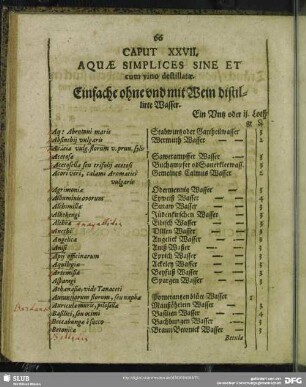 66
CAPUT XXVII.
AQUÆ SIMPLICES SINE ET
cum vino destillatæ.
Einfache ohne vnd mit Wein distil-
lirte Wasser.
Ein Vntz oder ij. Loth
Aq: Abrotani maris Stabwurtz oder Gartheilwasser
Absinthij vulgaris Wermuth Wasser
Acatiæ vulg. florum v. prun. sylv.
Acetosæ Sawrampffer Wasser
Acetosellæ seu trifolij acetosi
Acori veri, calami aromatici Gemeines Calmus Wasser
vulgaris
Agrimoniæ Odermennig Wasser
Albuminis ovorum Eyweiß Wasser
Alchimillæ Sinaw Wasser
Alkekengi Jüdenkirschen Wasser
Althææ Eibisch Wasser
Anethi Dillen Wasser
Angelicæ Angelick Wasser
Anisi Aniß Wasser
Apij officinarum Epich Wasser
Aquilegiæ Ackeley Wasser
Artemisiæ Beyfuß Wasser
Asparagi Spargen Wasser
Athanasiæ, vide Tanaceti
Aurantiorum florum, seu naphæ Pomerantzen blüt Wasser
Auriculæ muris, pilosellæ Maußöhrlein Wasser
Basilici, seu ocimi Basilien Wasser
Beccabungæ è succo Bachbungen Wasser
Betonicæ Braun Betonick Wasser
Betulæ
SLUB